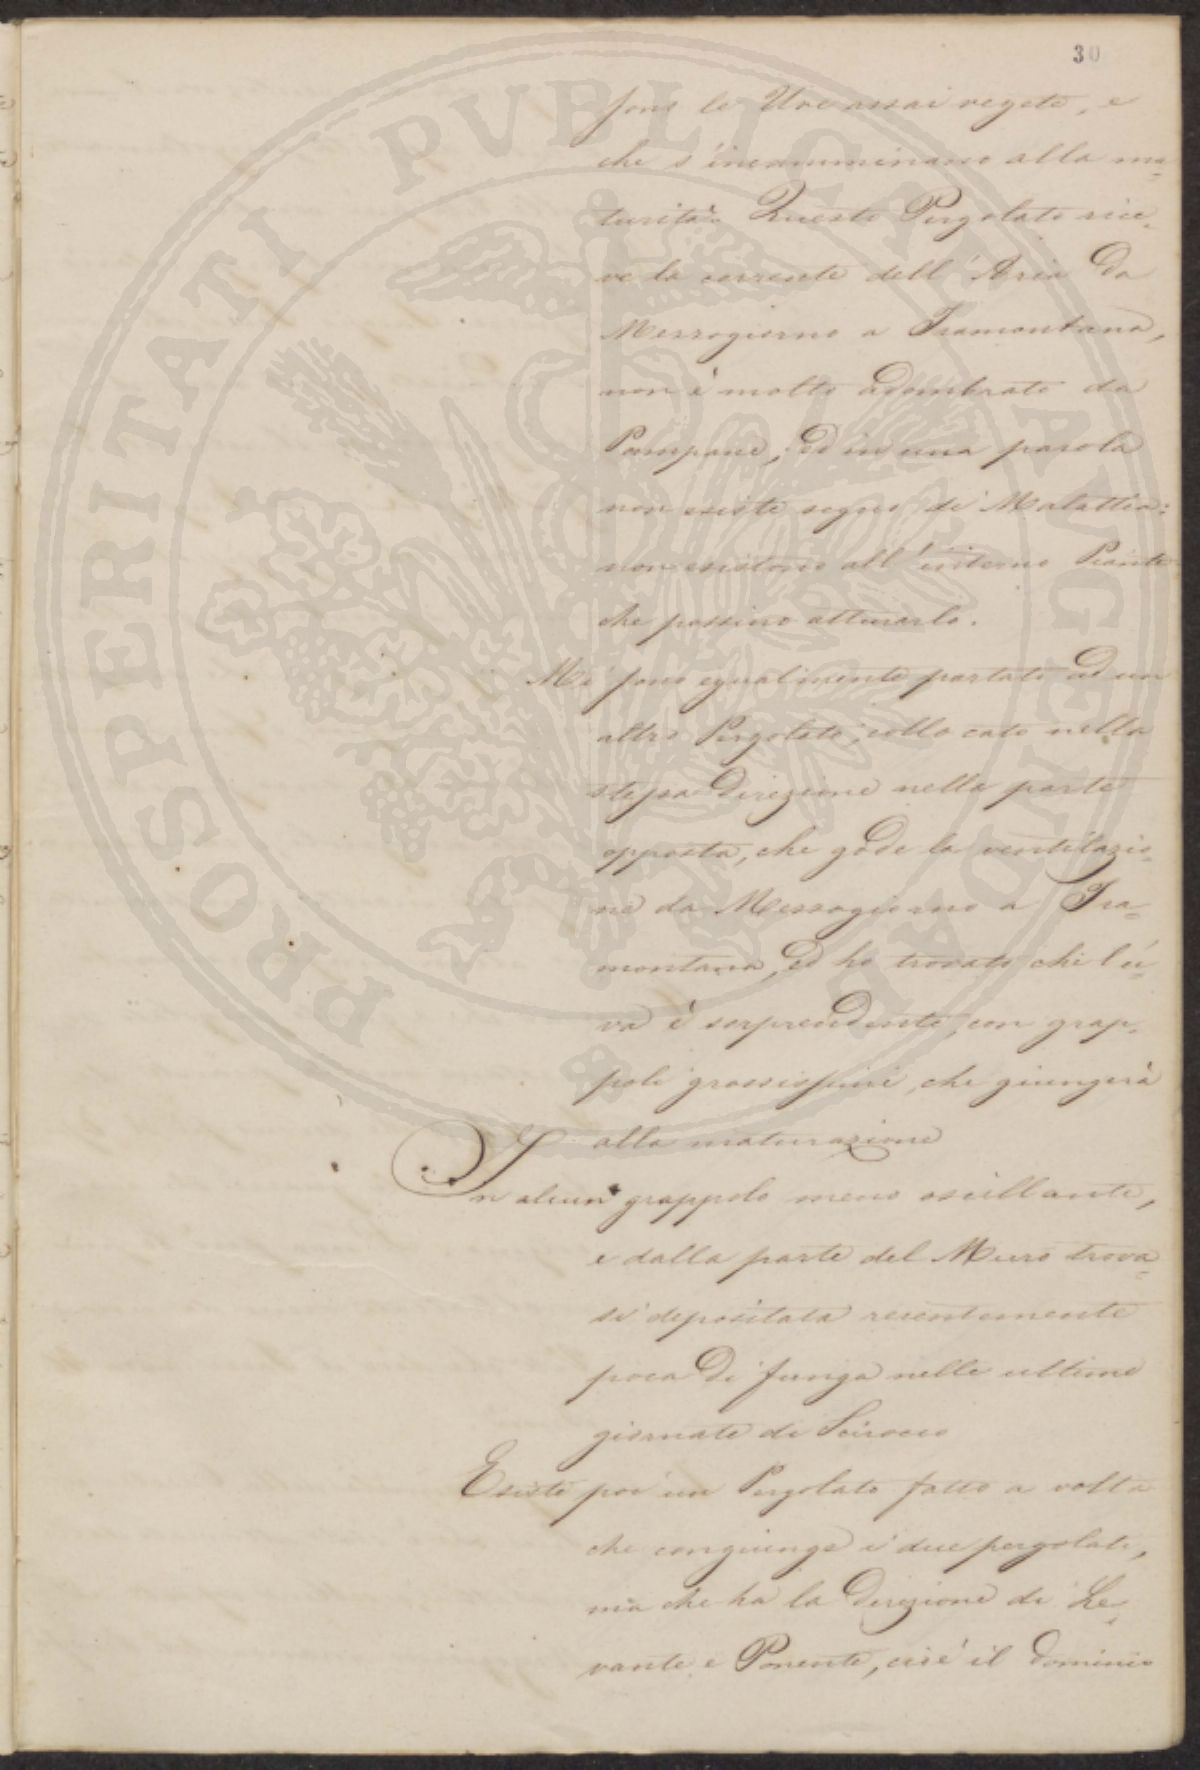 30
sono le Uve assai vegete, e
che s'incamminano alla ma=
turità. Questo Pergolato rice=
ve la corrente dell'Aria da
Mezzogiorno a Tramontana,
non è molto adombrato da
Pampane, ed in una parola
non esiste segno di Malattia:
non esistono all'interno Piante
che possino atturarlo.
Mi sono egualmente portato ad un
altro Pergolato, collocato nella
stessa direzione nella parte
opposta, che gode la ventilazio=
ne da Mezzogiorno a Tra=
montana, ed ho trovato che l'u=
va è sorprendente, con grap=
poli grossissimi, che giungerà
alla maturazione
In alcun grappolo meno oscillante,
e dalla parte del Muro trova=
si depositata recentemente
poca di funga nelle ultime
giornate di Scirocco
Esiste poi un Pergolato fatto a volta
che congiunge i due pergolati,
ma che ha la direzione di Le=
vante e Ponente, cioè il dominio
PROSPERITATI PVBLICAE AVGENDAE